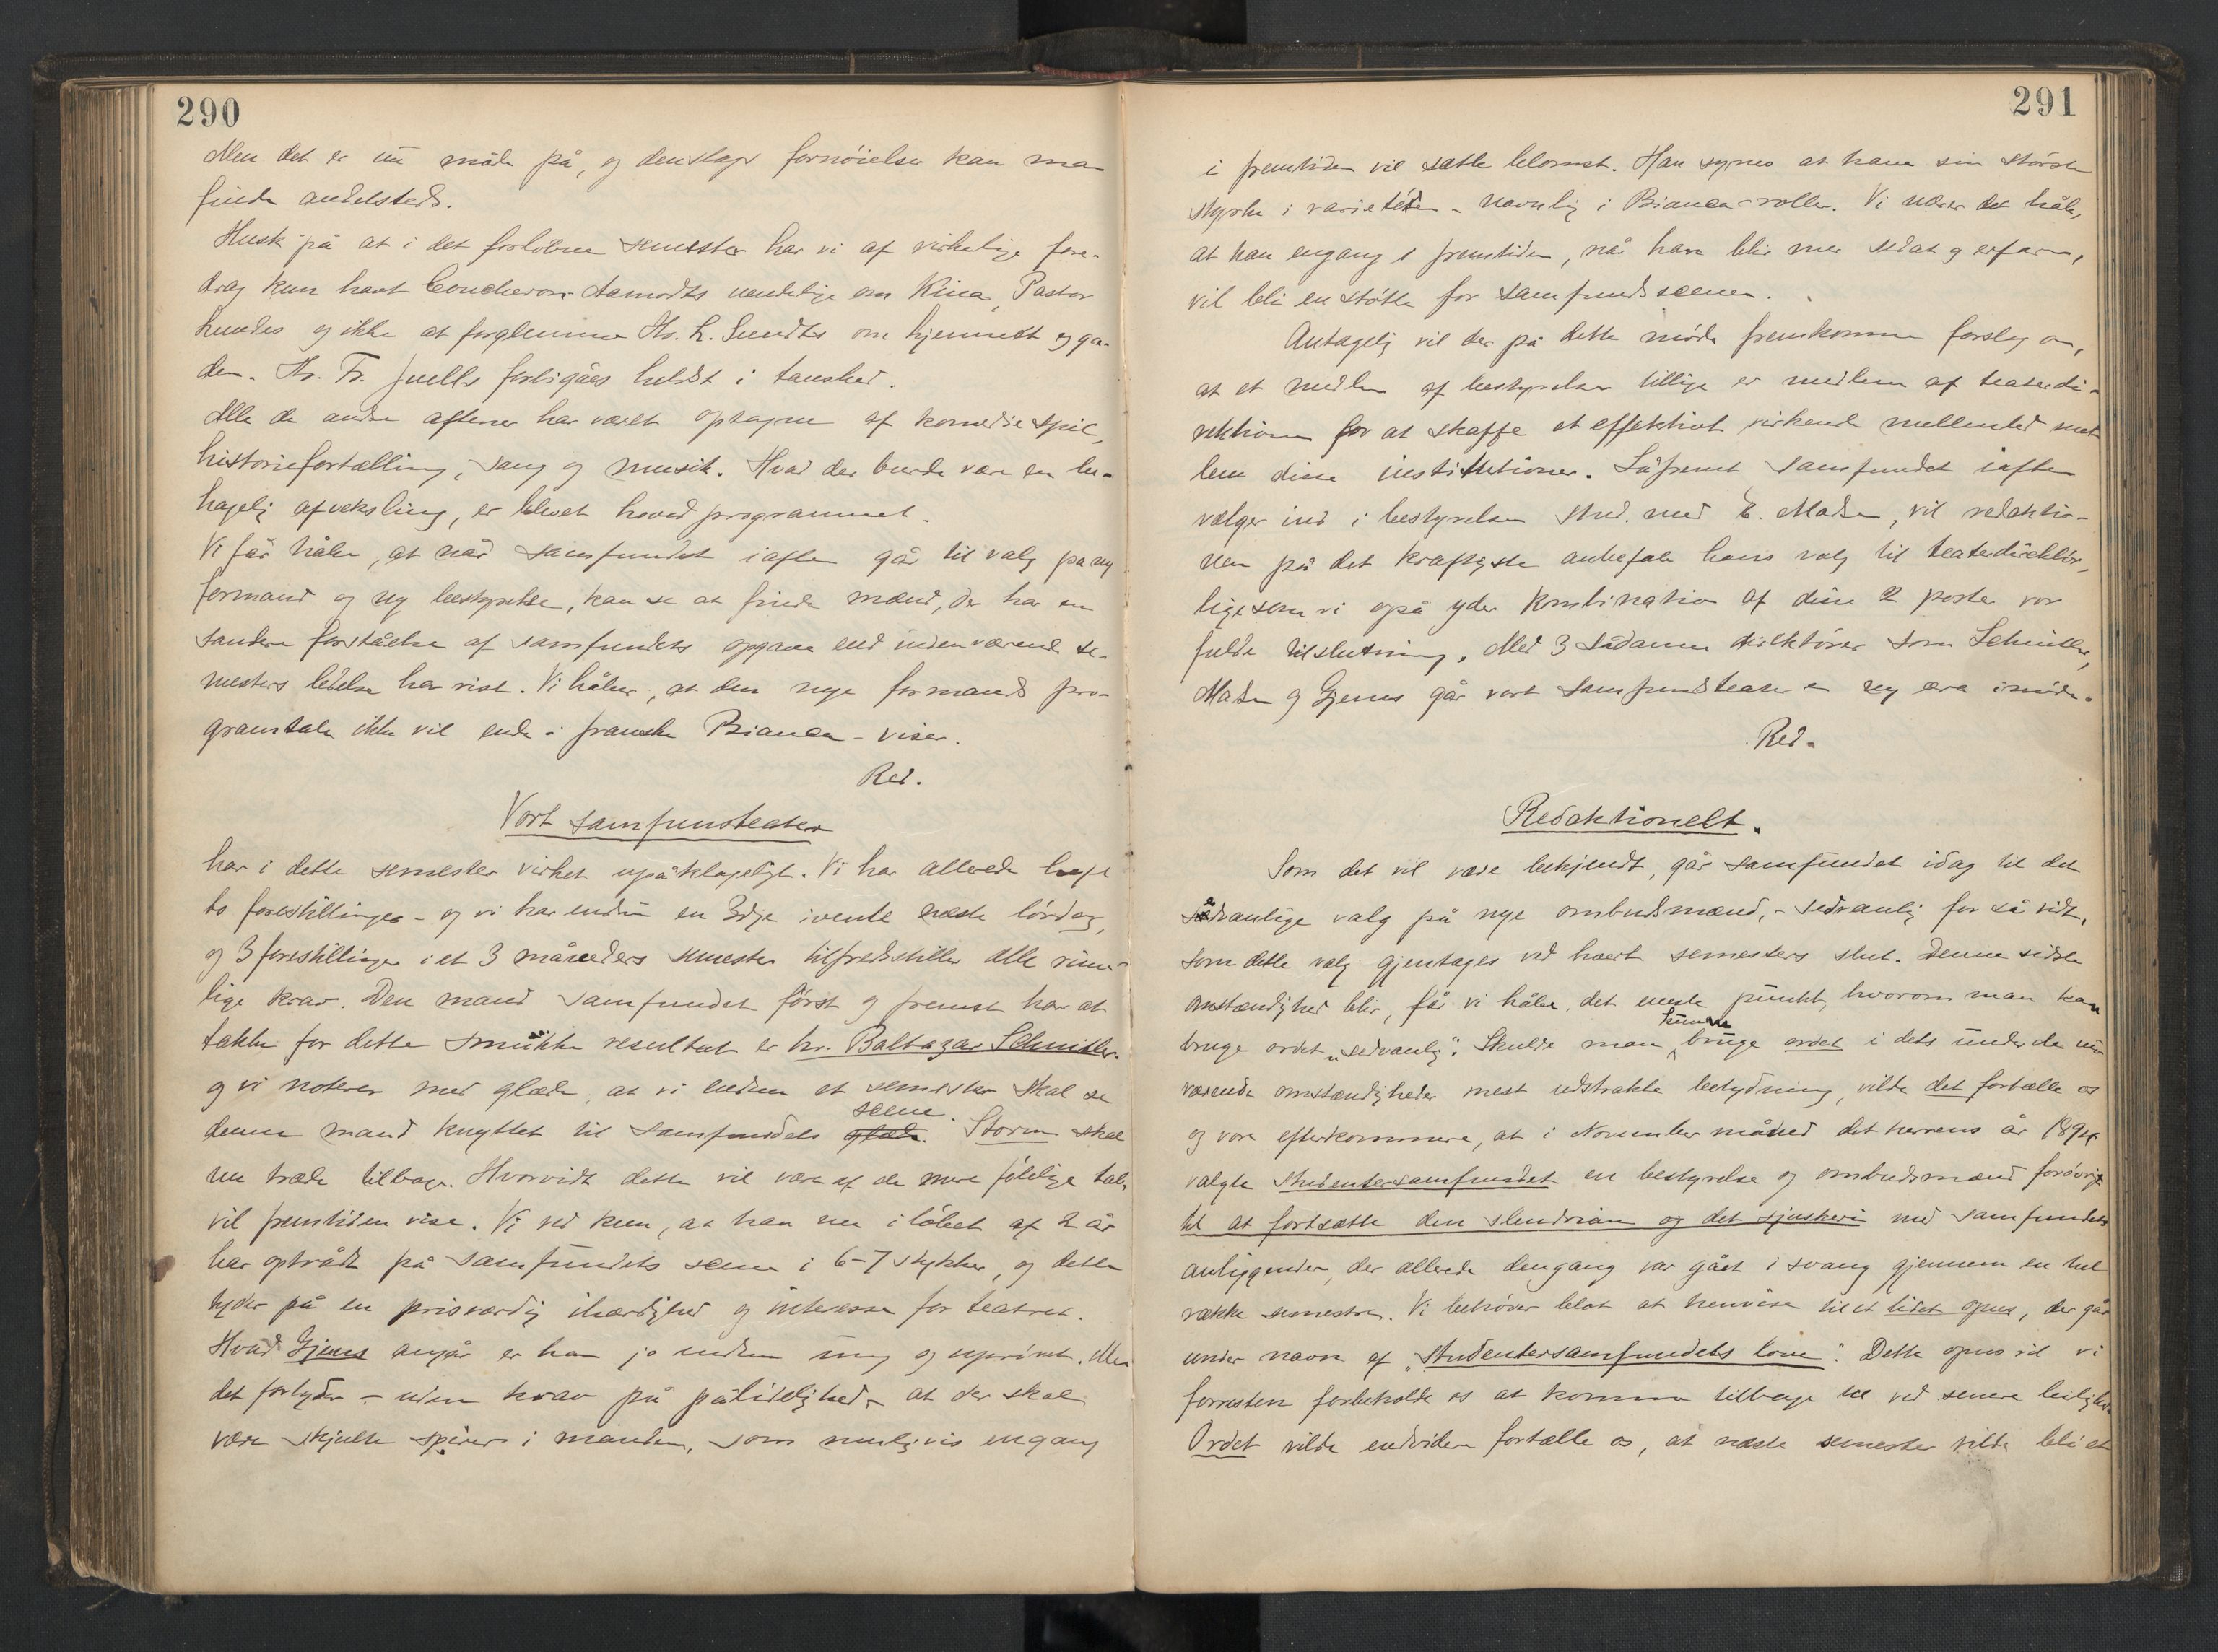 290
Men det er en måde på, og denslags fornøielser kan man
finde andetsteds.
Husk på at i det forløbne semester har vi af virkelige fore-
drag kun havt Coucheron Aamodts uendelige om Kina, Pastor
Lundes og ikke at forglemme Hr. L. Sundts om hjemmet og ga-
den. Hr. Fr. Juells forbigåes heldst i taushed.
Alle de andre aftener har været optagne af komediespil,
historiefortælling, sang og musik. Hvad der burde være en be-
hagelig afveksling, er blevet hovedprogrammet.
Vi får håbe, at når samfundet iaften går til valg på ny
formand og ny bestyrelse, kan se at finde mænd, der har en
sandere forståelse af samfundets opgave end indenværende se-
mesters ledelse har vist. Vi håber, at den nye formands pro-
gramtale ikke vil ende i franske Bianca-viser.
Red.
Vort samfunsteater
har i dette semester virket upåklageligt. Vi har allerede havt
to forestillinger - og vi har endnu en 3dje ivente næste lørdag,
og 3 forestillinger i et 3 måneders semester tilfredsstiller alle rime-
lige krav. Den mand samfundet først og fremst har at
takke for dette smukke resultat er hr. Baltazar Schnitler.
og vi noterer med glæde, at vi endnu et semester skal se
denne mand knyttet til samfundets glæde. scene. Storm skal
nu træde tilbage. Hvorvidt dette vil være af de mere følelige tab,
vil fremtiden vise. Vi ved kun, at han nu i løbet af 2 år
har optrådt på samfundets scene i 6-7 stykker, og dette
tyder på en prisværdig ihærdighed og interesse for teatret.
Hvad Gjems angår er han jo endnu ung og uprøvet. Men
det forlyder - uden krav på pålidelighed - at der skal
være skjulte spirer i manden, som muligvis engang
291
i fremtiden vil sætte blomst. Han synes at have sin største
styrke i varietéen - navnlig i Bianca-roller. Vi nærer det håb,
at han engang i fremtiden, når han blir mer sedat og erfaren,
vil bli en støtte for samfundsscenen.
Antagelig vil der på dette møde fremkomme forslag om,
at et medlem af bestyrelsen tillige er medlem af teaterdi-
rektionen for at skaffe et effektivt virkende mellemled mel
lem disse institutioner. Såfremt samfundet iaften
vælger ind i bestyrelsen stud. med E. Madsen, vil redaktio-
nen på det kraftigste anbefale hans valg til teaterdirektør,
ligesom vi også yder kombination af disse 2 poster vor
fulde tilslutning. Med 3 sådanne direktører som Schnitler,
Madsen og Gjems går vort samfundsteater en ny æra imøde.
Red.
Redaktionelt.
Som det vil være bekjendt, går samfundet idag til det
sædvanlige valg på nye ombudsmænd, - sedvanlig for så vidt,
som dette valg gjentages ved hvert semesters slut. Denne sidste
omstændighed blir, får vi håbe, det eneste punkt, hvorom man kan
bruge ordet „sedvanlig". Skulde man kunne bruge ordet i dets under de nu
værende omstændigheder mest udstrakte betydning, vilde det fortælle os
og vore efterkommere, at i November måned det herrens år 1894
valgte studentersamfundet en bestyrelse og ombudsmænd forøvrigt
til at fortsætte den slendrian og det sjuskeri med samfundets
anliggender, der allerede dengang var gået i svang gjennem en hel
række semestre. Vi behøver blot at henvise til et lidet opus, der går
under navn af „studentersamfundets love". Dette opus vil vi
forresten forbeholde os at komme tilbage til ved senere leilighed.
Ordet vilde endvidere fortælle os, at næste semester vilde bli et